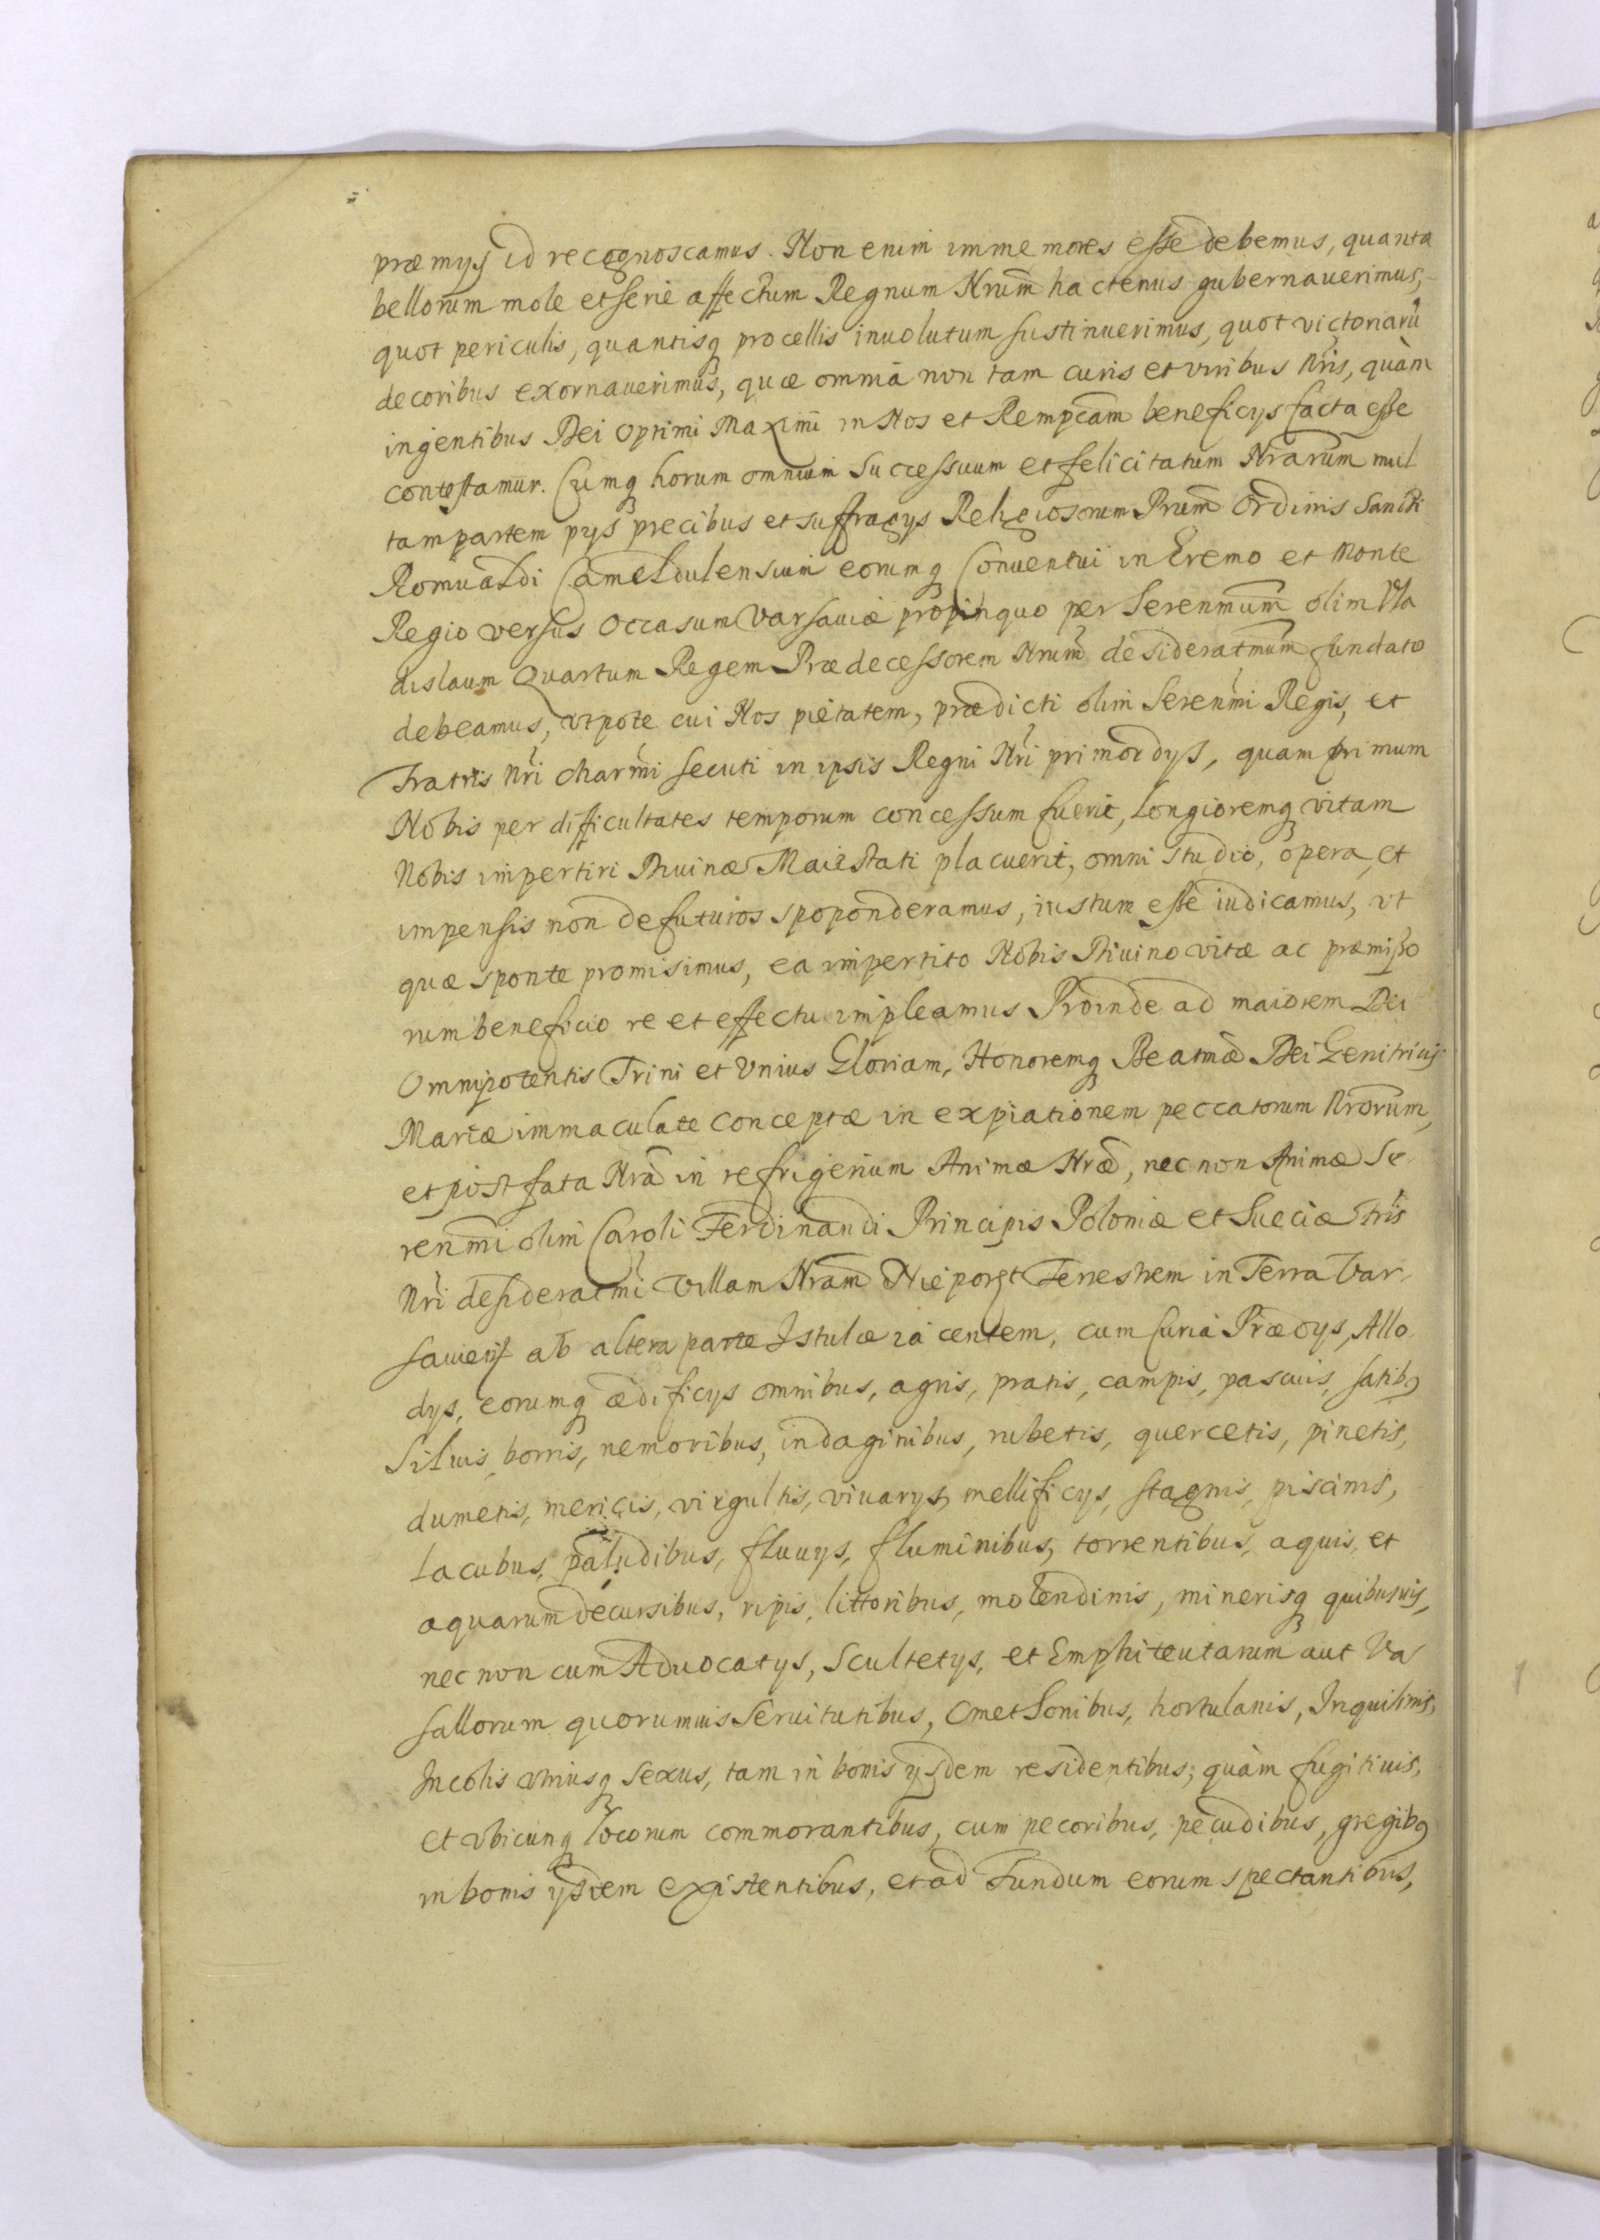 præmys id recognoscamus. Non enim immemores esse debemus, quanta
bellorum mole et serie affectum Regnum Nrum hactenus gubernauerimus,
quot periculis, quantisq procellis inuolutum sustinuerimus, quot victoriarũ
decoribus exornauerimus, quæ omnia non tam curis et viribus Nris, quàm
ingentibus Dei Optimi Maximi in Nos et Rempcam beneficys facta esse
contestamur. Cumq horum omnium Successuum et felicitatum Nrarum mul
tam partem pys precibus et suffragys Religiosorum Prum Ordinis Sancti
Romualdi Cameldulensium eorumq Conuentui in Eremo et Monte
Regio versus Occasum Varsauiæ propinquo per Serenmum olim Vla
dislaum Quartum Regem Prædecessorem Nrum desideratmum fundato
debeamus, vtpote cui Nos pietatem, prædicti olim Serenmi Regis, et
Fratris Nri charmi secuti in ipsis Regni Nri primordys, quam primum
Nobis per difficultates temporum concessum fuerit, longioremq vitam
Nobis impertiri Diuinæ Maiestati placuerit, omni studio, opera, et
impensis non defuturos spoponderamus, iustum esse iudicamus, vt
quæ sponte promisimus, ea impertito Nobis Diuino vitæ ac præmisso
rum beneficio re et effectu impleamus Proinde ad maiorem Dei
Omnipotentis Trini et Vnius Gloriam, Honoremq Beatmæ Dei Genitricis
Mariæ immaculate conceptæ in expiationem peccatorum Nrorum,
et post fata Nra in refrigerium Animæ Nræ, nec non Animæ Se
renmi olim Caroli Ferdinandi Principis Poloniæ et Sueciæ Fris
Nri desideratmi Villam Nram Nieporęt Terrestrem in Terra Var
sauiens ab altera parte Istulæ iacentem, cum Curia Prædys, Allo
dys, eorumq ædificys omnibus, agris, pratis, campis, pascuis, satibq
Siluis, borris, nemoribus, indaginibus, rubetis, quercetis, pinetis,
dumetis, mericis, virgultis, viuarys, mellificys, stagnis, piscinis,
Lacubus, paludibus, fluuys, fluminibus, torrentibus, aquis, et
aquarum decursibus, ripis, littoribus, molendinis, minerisq quibusuis,
nec non cum Aduocatys, Scultetys, et Emphiteutarum aut Va
sallorum quorumuis Seruitutibus, Cmethonibus, hortulanis, Inquilinis,
Incolis vtriusq sexus, tam in bonis ysdem residentibus, quàm fugitiuis,
et vbicunq locorum commorantibus, cum pecoribus, pecudibus, gregibq
in bonis ysdem existentibus, et ad Fundum eorum spectantibus,